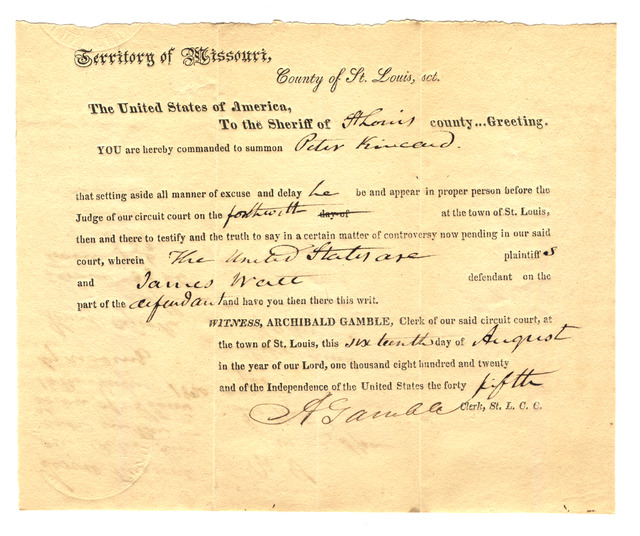 Territory of Missouri,
County of St. Louis, sct.
The United States of America,
To the Sheriff of St Louis county...Greeting.
YOU are hereby commanded to summon Peter Kincaid.
that setting aside all manner of excuse and delay he be and appear in proper person before the
Judge of our circuit court on the forthwith day of at the town of St. Louis,
then and there to testify and the truth to say in a certain matter of controversy now pending in our said
court, wherein The United States are plaintiff s
and James Watt defendant on the
part of the defendant and have you then there this writ.
WITNESS, ARCHIBALD GAMBLE, Clerk of our said circuit court, at
the town of St. Louis, this sixteenth day of August
in the year of our Lord, one thousand eight hundred and twenty
and of the Independence of the United States the forty fifth
A Gamble Clerk, St. L. C. C.